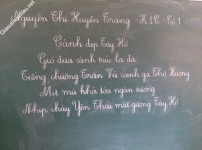 Nguyễn Thị Huyền Trang - K1C - Tổ 1
Cảnh đẹp Tây Hồ
Gió đưa cành trúc la đà
Tiếng chuông Trấn Vũ canh gà Thọ Xương
Mịt mù khói tỏa ngàn sương
Nhịp chày Yên Thái mặt gương Tây Hồ